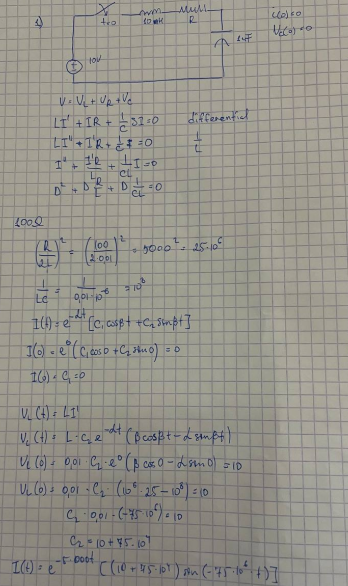 1)
t=0
10mH
R
1uF
10V
i(0)=0
Vc(0)=0
V = VL + VR + Vc
LI' + IR + 1/C SI = 0
differential
LI'' + I'R + 1/C I = 0
1/L
I'' + I'R/L + 1/CL I = 0
D² + D R/L + D 1/CL = 0
100Ω
(R/2L)² = (100/2·0,01)² = 5000² = 25·10⁶
1/LC = 1/0,01·10⁻⁶ = 10⁸
I(t) = e^-αt [C₁cosβt + C₂sinβt]
I(0) = e⁰ (C₁cos0 + C₂sin0) = 0
I(0) = C₁ = 0
VL(t) = LI'
VL(t) = L·C₂ e^-αt (βcosβt - αsinβt)
VL(0) = 0,01 C₂·e⁰ (βcos0 - αsin0) = 10
VL(0) = 0,01·C₂·(10⁶·25 - 10⁸) = 10
C₂·0,01·(-75·10⁶) = 10